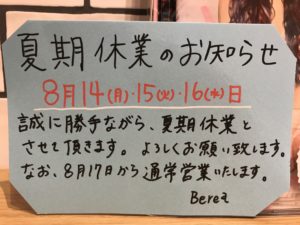 夏期休業のお知らせ
8月14(月)・15(火)・16(水)日
誠に勝手ながら、夏期休業と
させて頂きます。よろしくお願い致します。
なお、8月17日から通常営業いたします。